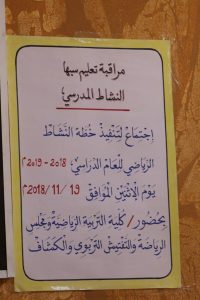 مراقبة تعليم سبها
النشاط المدرسي
إجتماع لتنفيذ خطة النشاط
الرياضي للعام الدراسي، 2018 - 2019م
يوم الاثنين الموافق 19 /11/ 2018م
بحضور/ كلية التربية الرياضية ومجلس
الرياضة والتفتيش التربوي والكشاف